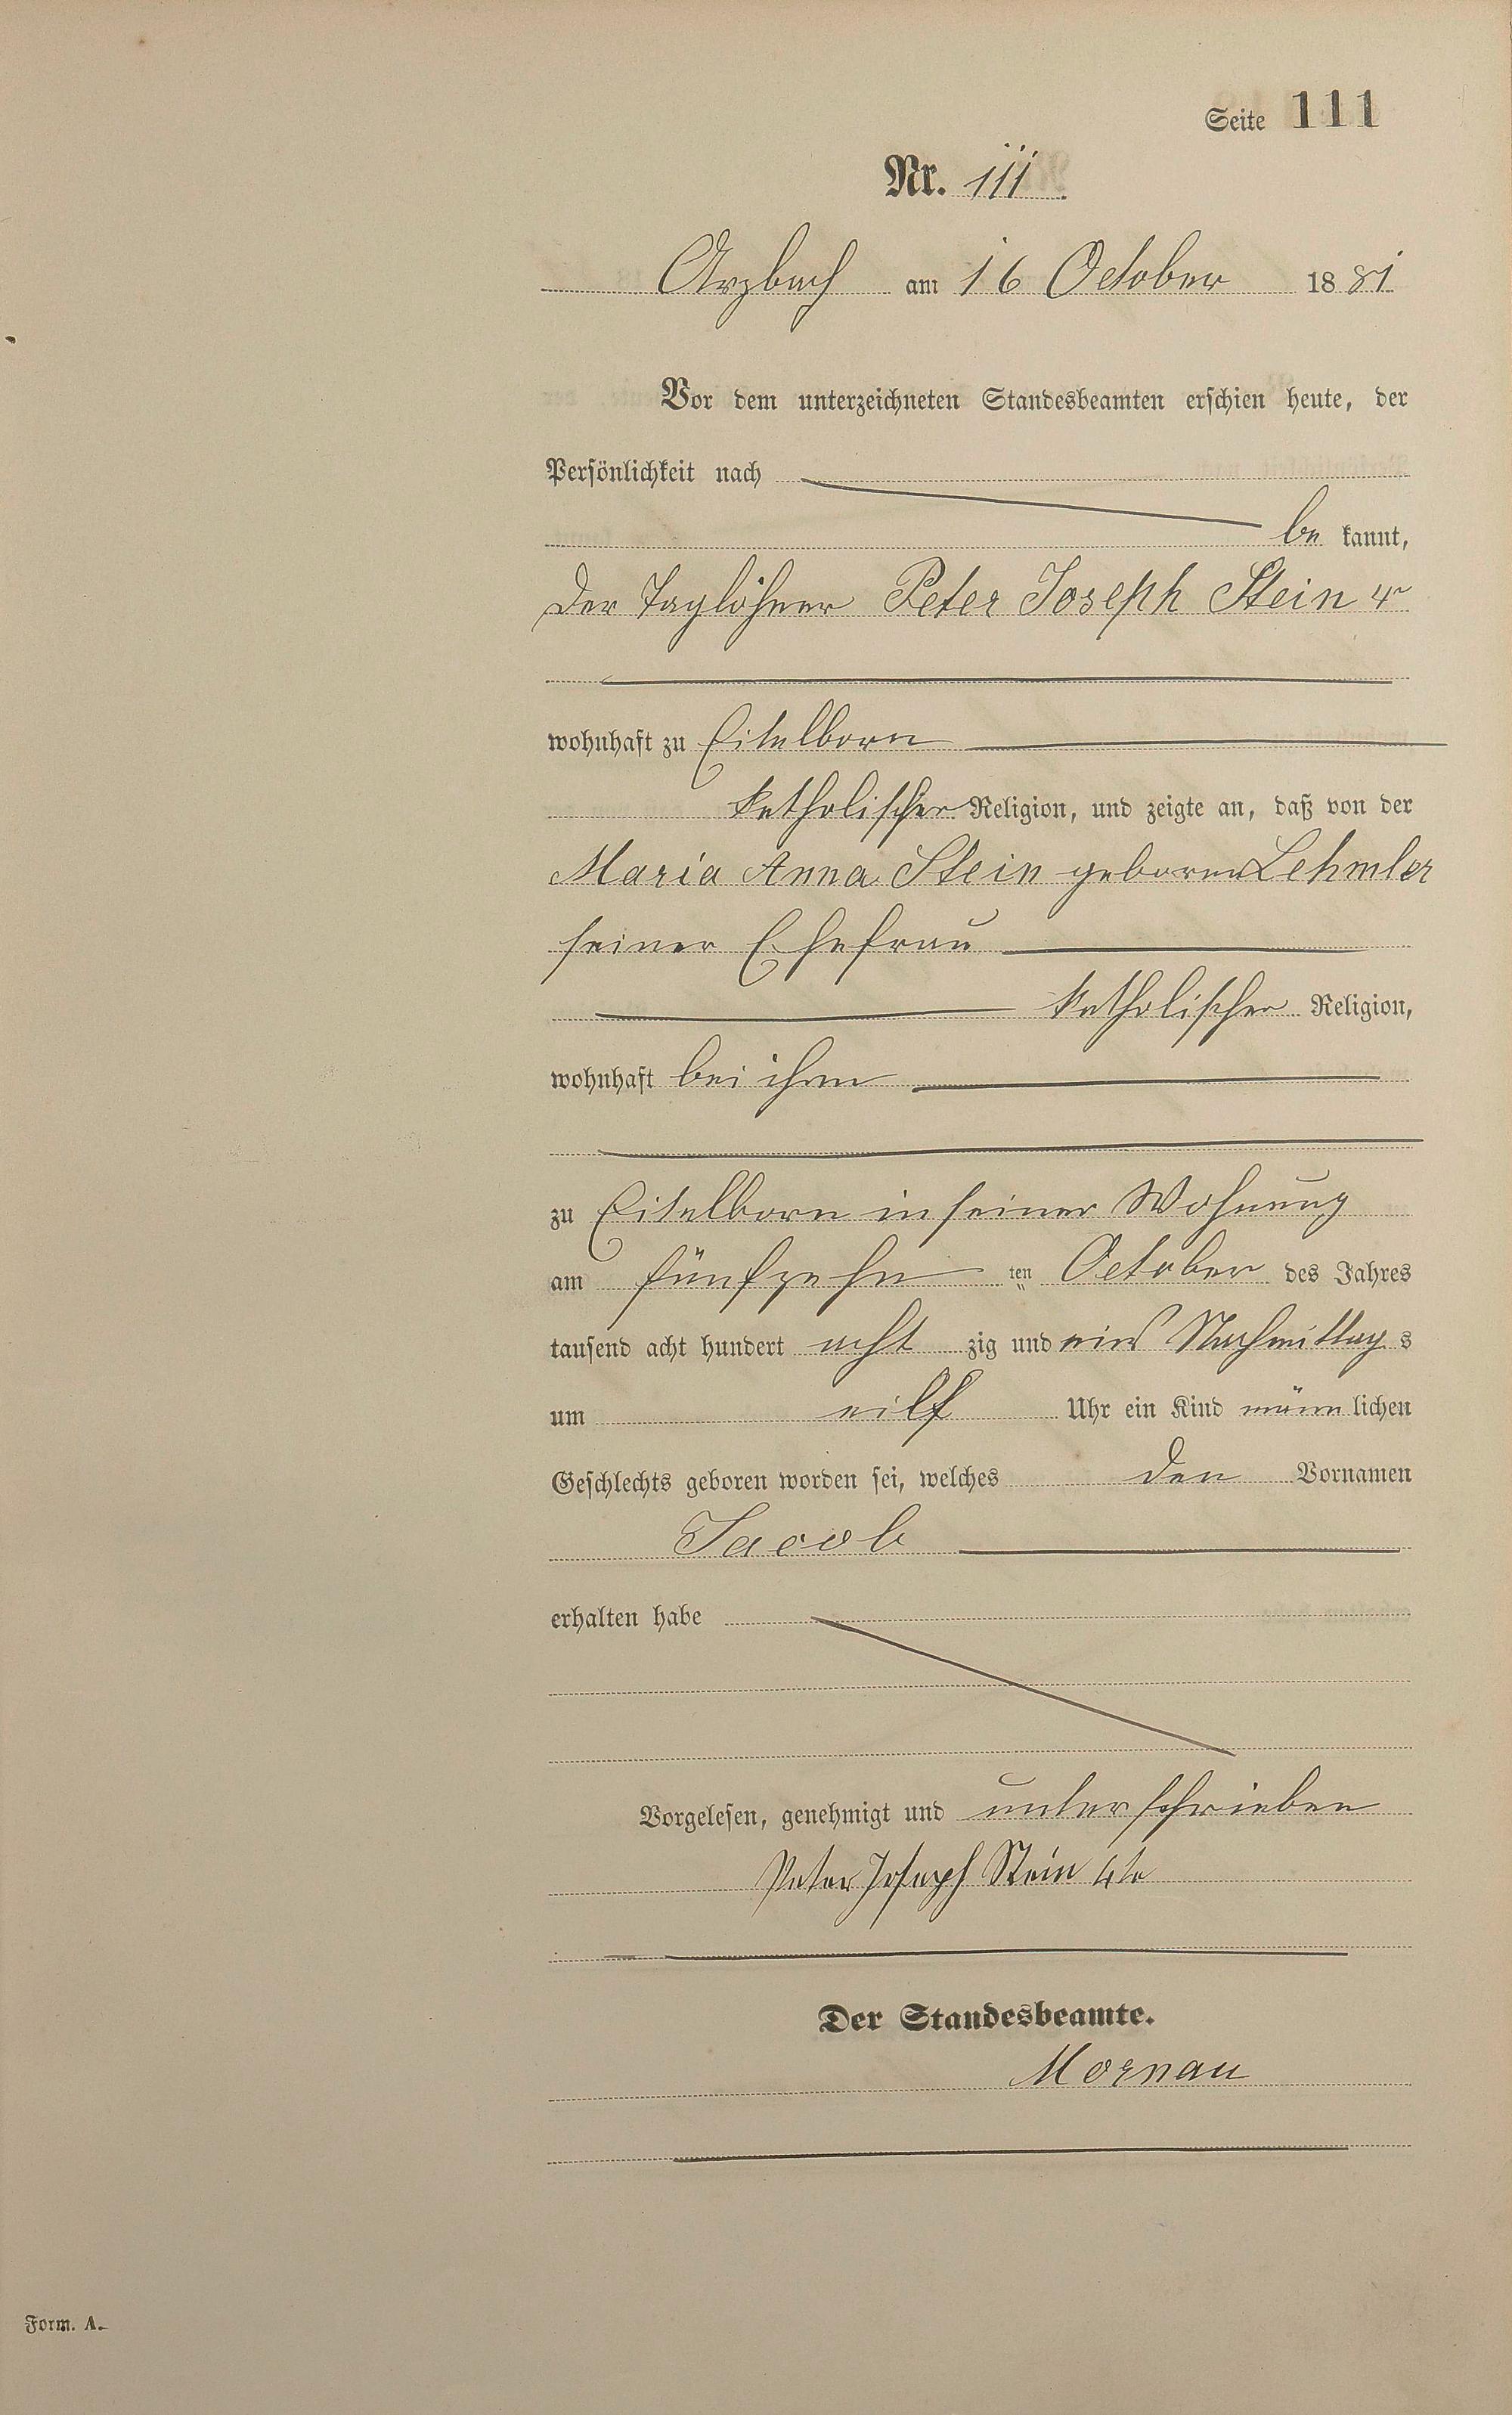 Seite 111
Nr. 111.
Arzbach am 16 October 1881
Vor dem unterzeichneten Standesbeamten erschien heute, der
Persönlichkeit nach
be kannt,
der Taglöhner Peter Joseph Stein 4r
wohnhaft zu Eitelborn
katholischer Religion, und zeigte an, daß von der
Maria Anna Stein geborne Lehmler
seiner Ehefrau
katholischer Religion,
wohnhaft bei ihm
zu Eitelborn in seiner Wohnung
am fünfzehn ten October des Jahres
tausend acht hundert acht zig und eins Nachmittag s
um eilf Uhr ein Kind männ lichen
Geschlechts geboren worden sei, welches den Vornamen
Jacob
erhalten habe
Vorgelesen, genehmigt und unterschrieben
Peter Joseph Stein 4te
Der Standesbeamte.
Mornau
Form. A.